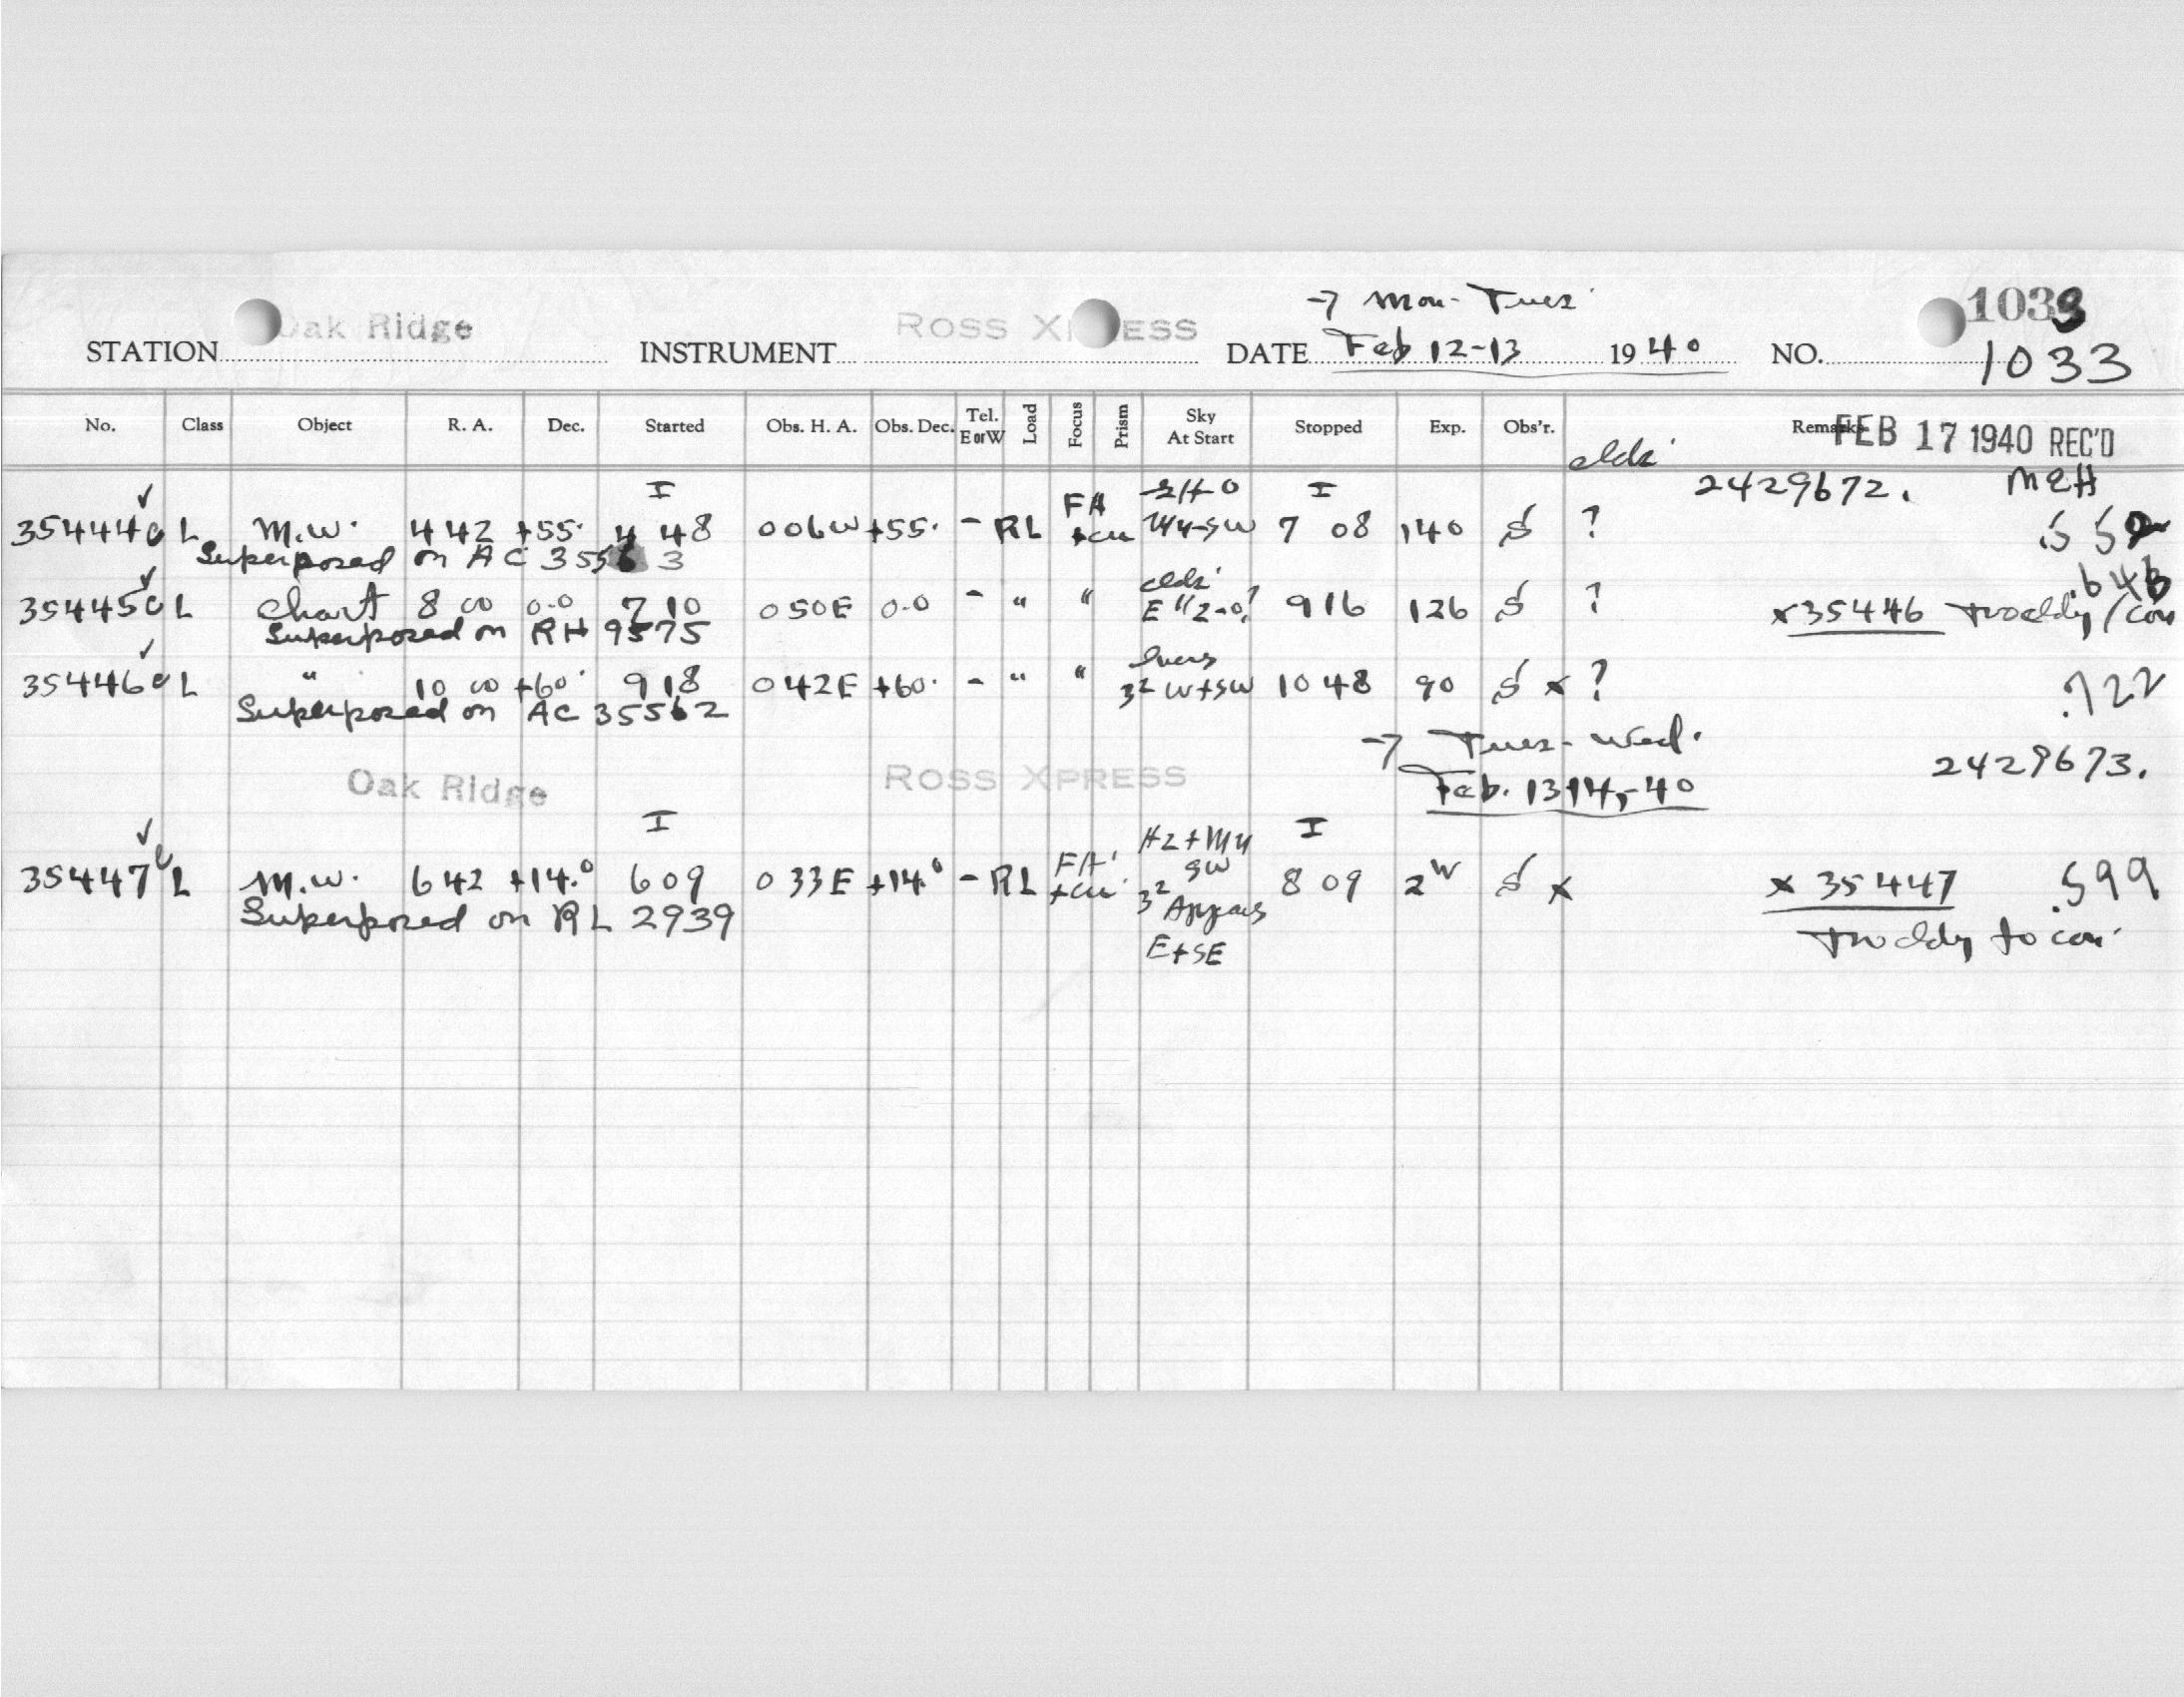 → Mon-Tues
1033
STATION Oak Ridge INSTRUMENT ROSS XPRESS DATE Feb 12-13 1940 NO. 1033
No. Class Object R. A. Dec. Started Obs. H. A. Obs. Dec. Tel. E or W Load Focus Prism Sky At Start Stopped Exp. Obs'r. Remarks
FEB 17 1940 REC'D
cldr
2429672. MEH
35444 L M.W. 4 42 +55. I 4 48 0 06W +55. - RL FA I 7 08 140 S ? .55
Superposed on AC 35563
35445 L Chart 8 00 0.0 7 10 0 50E 0.0 - " " 9 16 126 S ? .646
x 35446
Superposed on RH 9575
35446 L " 10 00 +60. 9 18 0 42E +60. - " " 3² W+SW 10 48 90 S x ? .722
Superposed on AC 35562
→ Tues-Wed.
2429673.
Oak Ridge ROSS XPRESS Feb. 13 14, -40
35447 L M.W. 6 42 +14.0 I 6 09 0 33E +14.0 - RL FA Hz + SW 3² E+SE I 8 09 S x x 35447 .599
Superposed on RL 2939